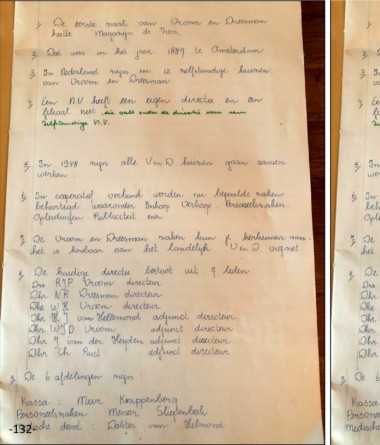 1. De eerste naal van Vroom en Dreesman
heette "Magazijn de Zon,
2. Dat was in het jaar 1887 te Amsterdam
3. In Nederland zijn nu 12 zelfstandige huizen
van Vroom en Dreesman
4. Een N.V. heeft een eigen directie en een
filiaal niet, die valt onder de directie van een
zelfstandige N.V.
5. In 1948 zijn alle V en D huizen gaan samen
werken
6. In coöperatief verband worden nu bepaalde zaken
behartigd waaronder Inkoop Verkoop Personeelszaken
Opleidingen Publiciteit enz
7. De Vroom en Dreesman zaken kun je herkennen aan
het landelijk V en D vignet.
8. De huidige directie bestaat uit 7 leden
Drs RJP Vroom directeur
Dhr NR Dreesman directeur
Dhr WH Vroom directeur
Dhr HJ van Hellemond adjunct directeur
Dhr WJD Vroom adjunct directeur
Dhr J van der Heyden adjunct directeur
Dhr Ch Rust adjunct directeur
9. De 6 afdelingen zijn
Kassa: Knippenberg
Personeelszaken Meneer
-132- dienst: Dokter van Helmond